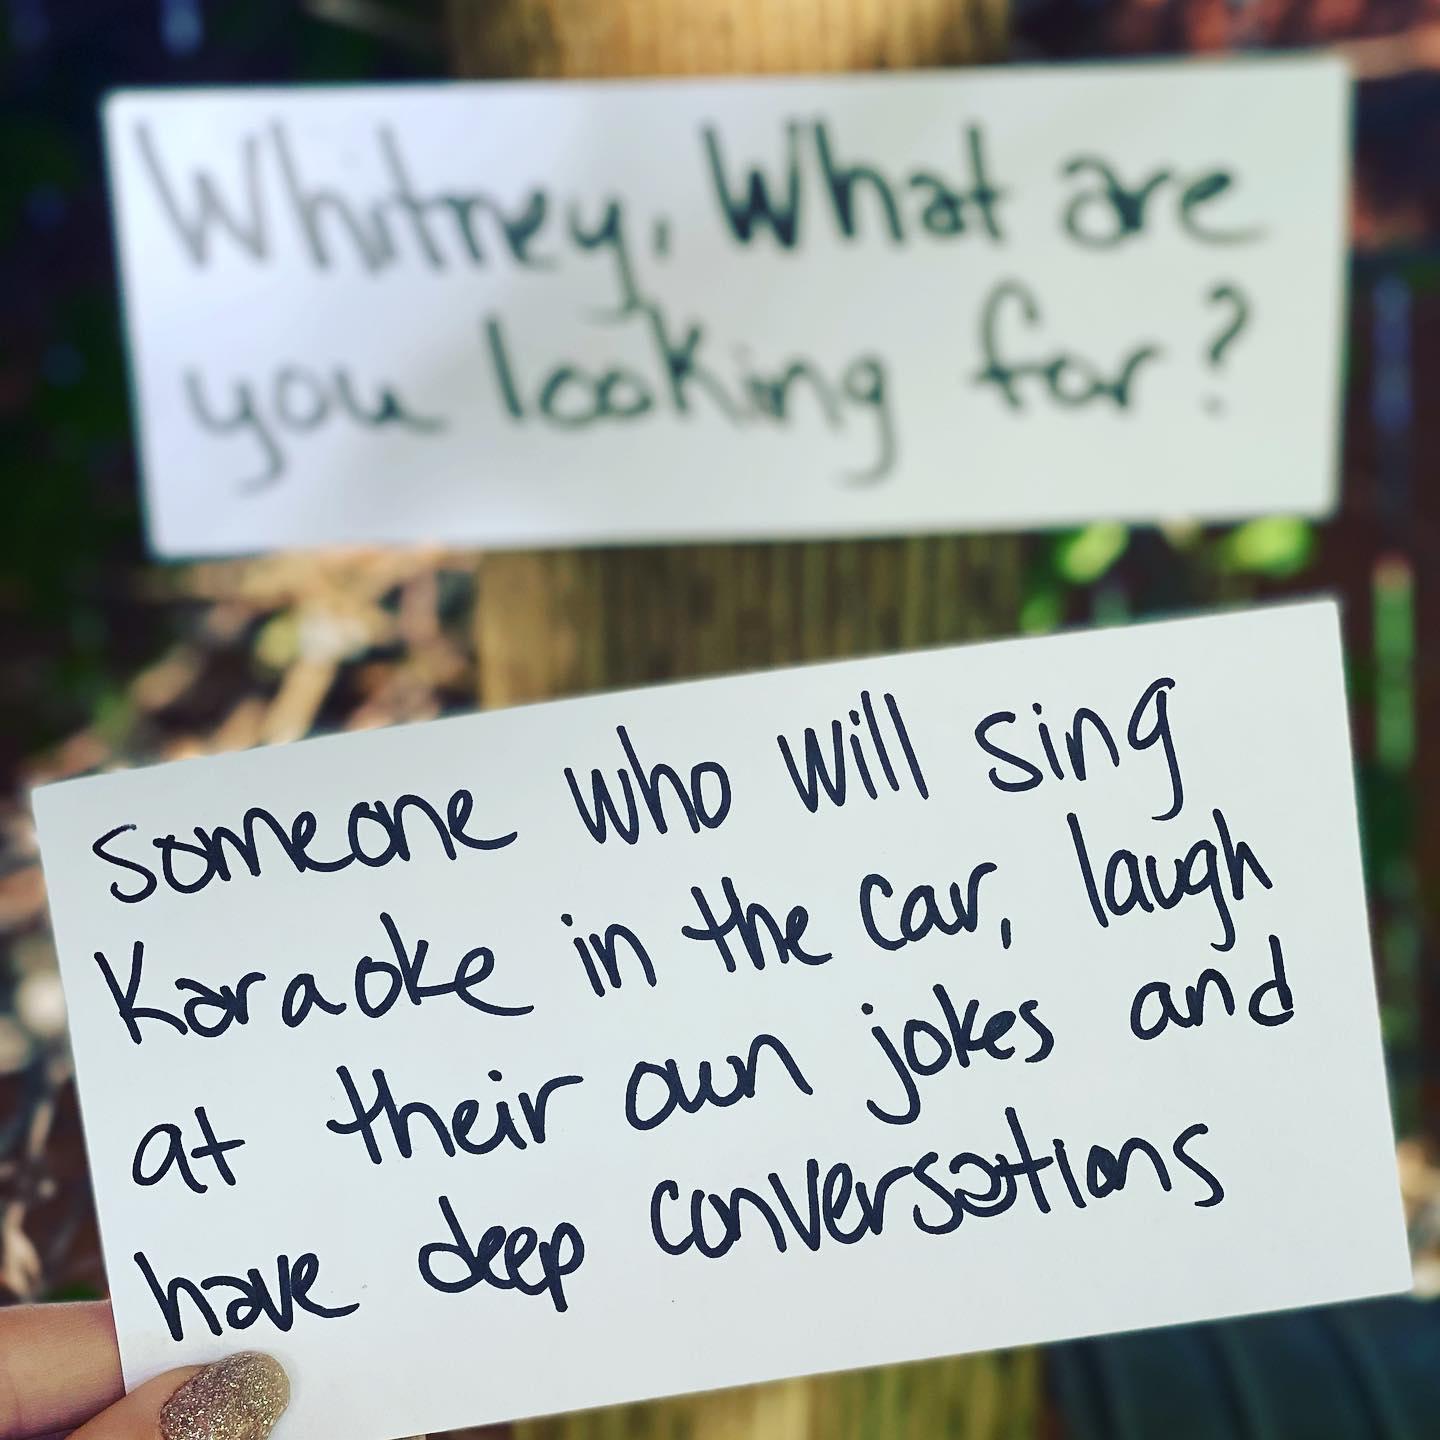 Whitney, What are
you looking for?
Someone who will sing
Karaoke in the car, laugh
at their own jokes and
have deep conversations